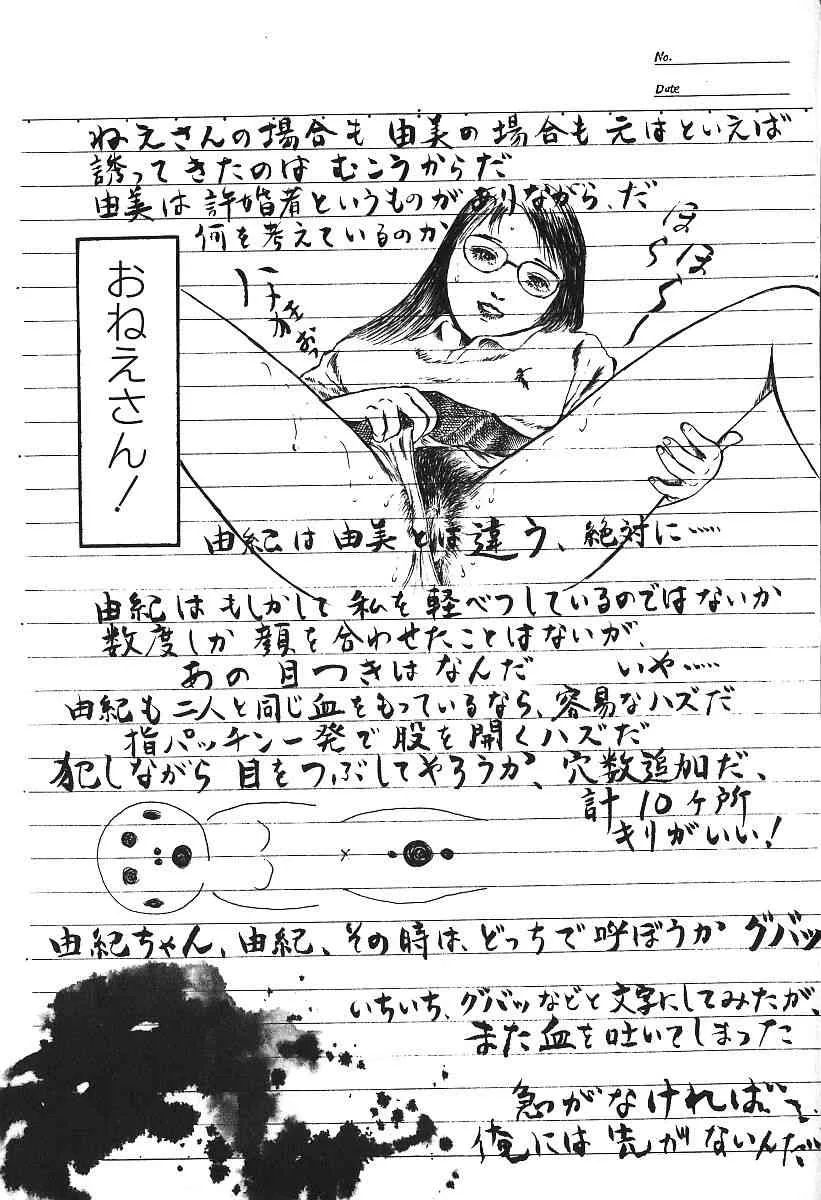 No.
Date
ねえさんの場合も由美の場合も元はといえば
誘ってきたのはむこうからだ
由美は許婚者というものがありながら、だ
何を考えているのか
ほ〜ら
ほ〜ら
おねえさん!
由紀は由美とは違う、絶対に……
由紀はもしかして私を軽べつしているのではないか
数度しか顔を合わせたことはないが、
あの目つきはなんだ いや……
由紀も二人と同じ血をもっているなら、容易なハズだ
指パッチン一発で股を開くハズだ
犯しながら目をつぶしてやろうか、穴数追加だ、
計10ヶ所
キリがいい!
由紀ちゃん、由紀、その時は、どっちで呼ぼうか グバッ
いちいち、グバッなどと文字にしてみたが、
また血を吐いてしまった
急がなければ…
俺には先がないんだ